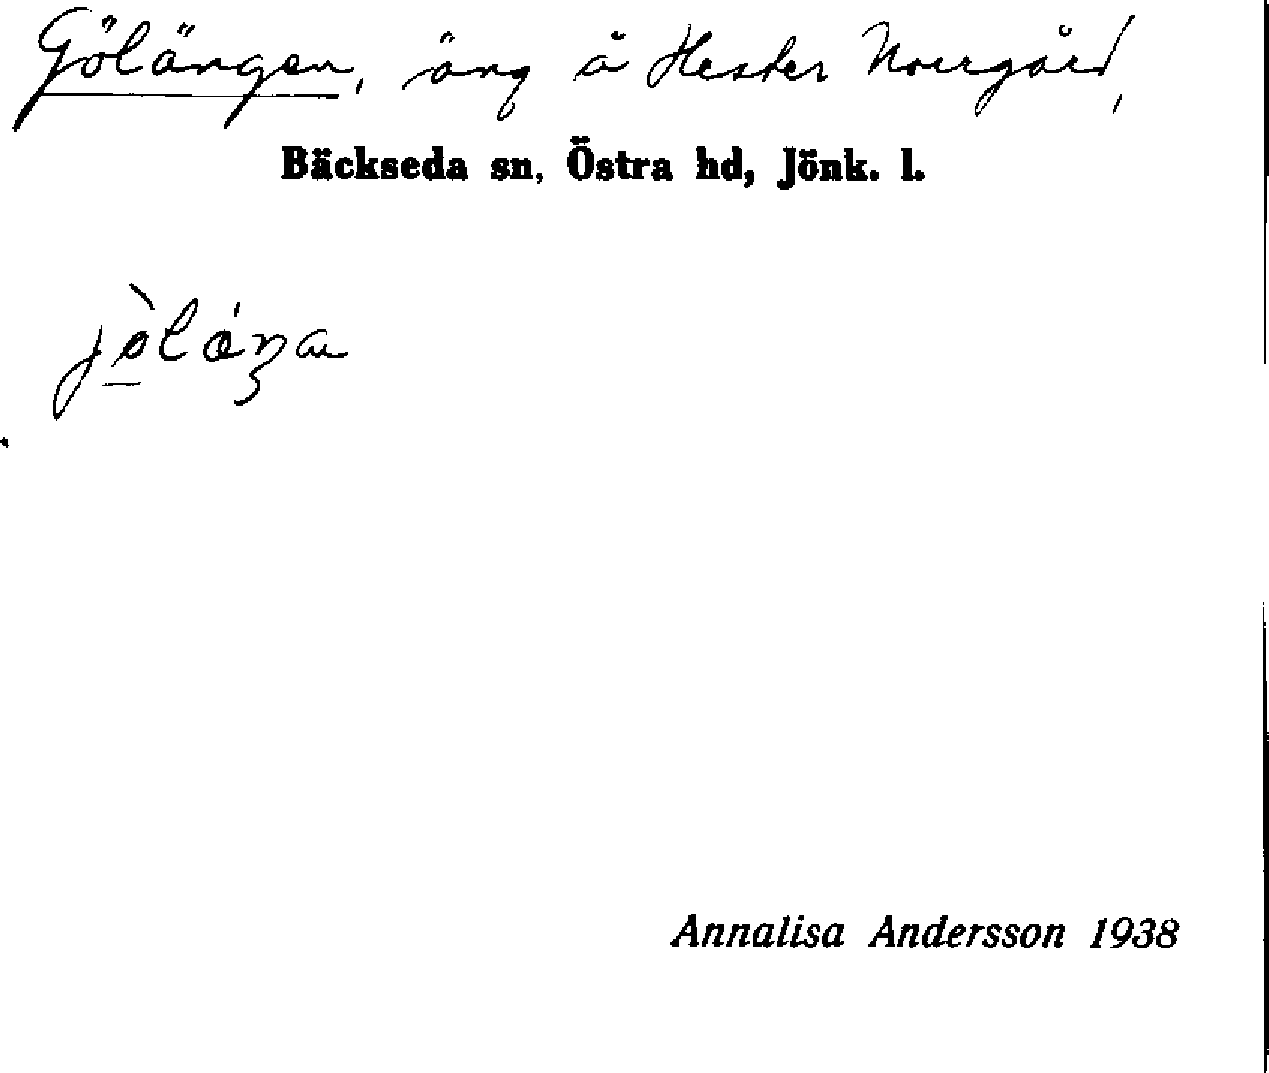 Gölängen, äng å Hester Norrgård,
Bäckseda sn, Östra hd, Jönk. l.
Annalisa Andersson 1938